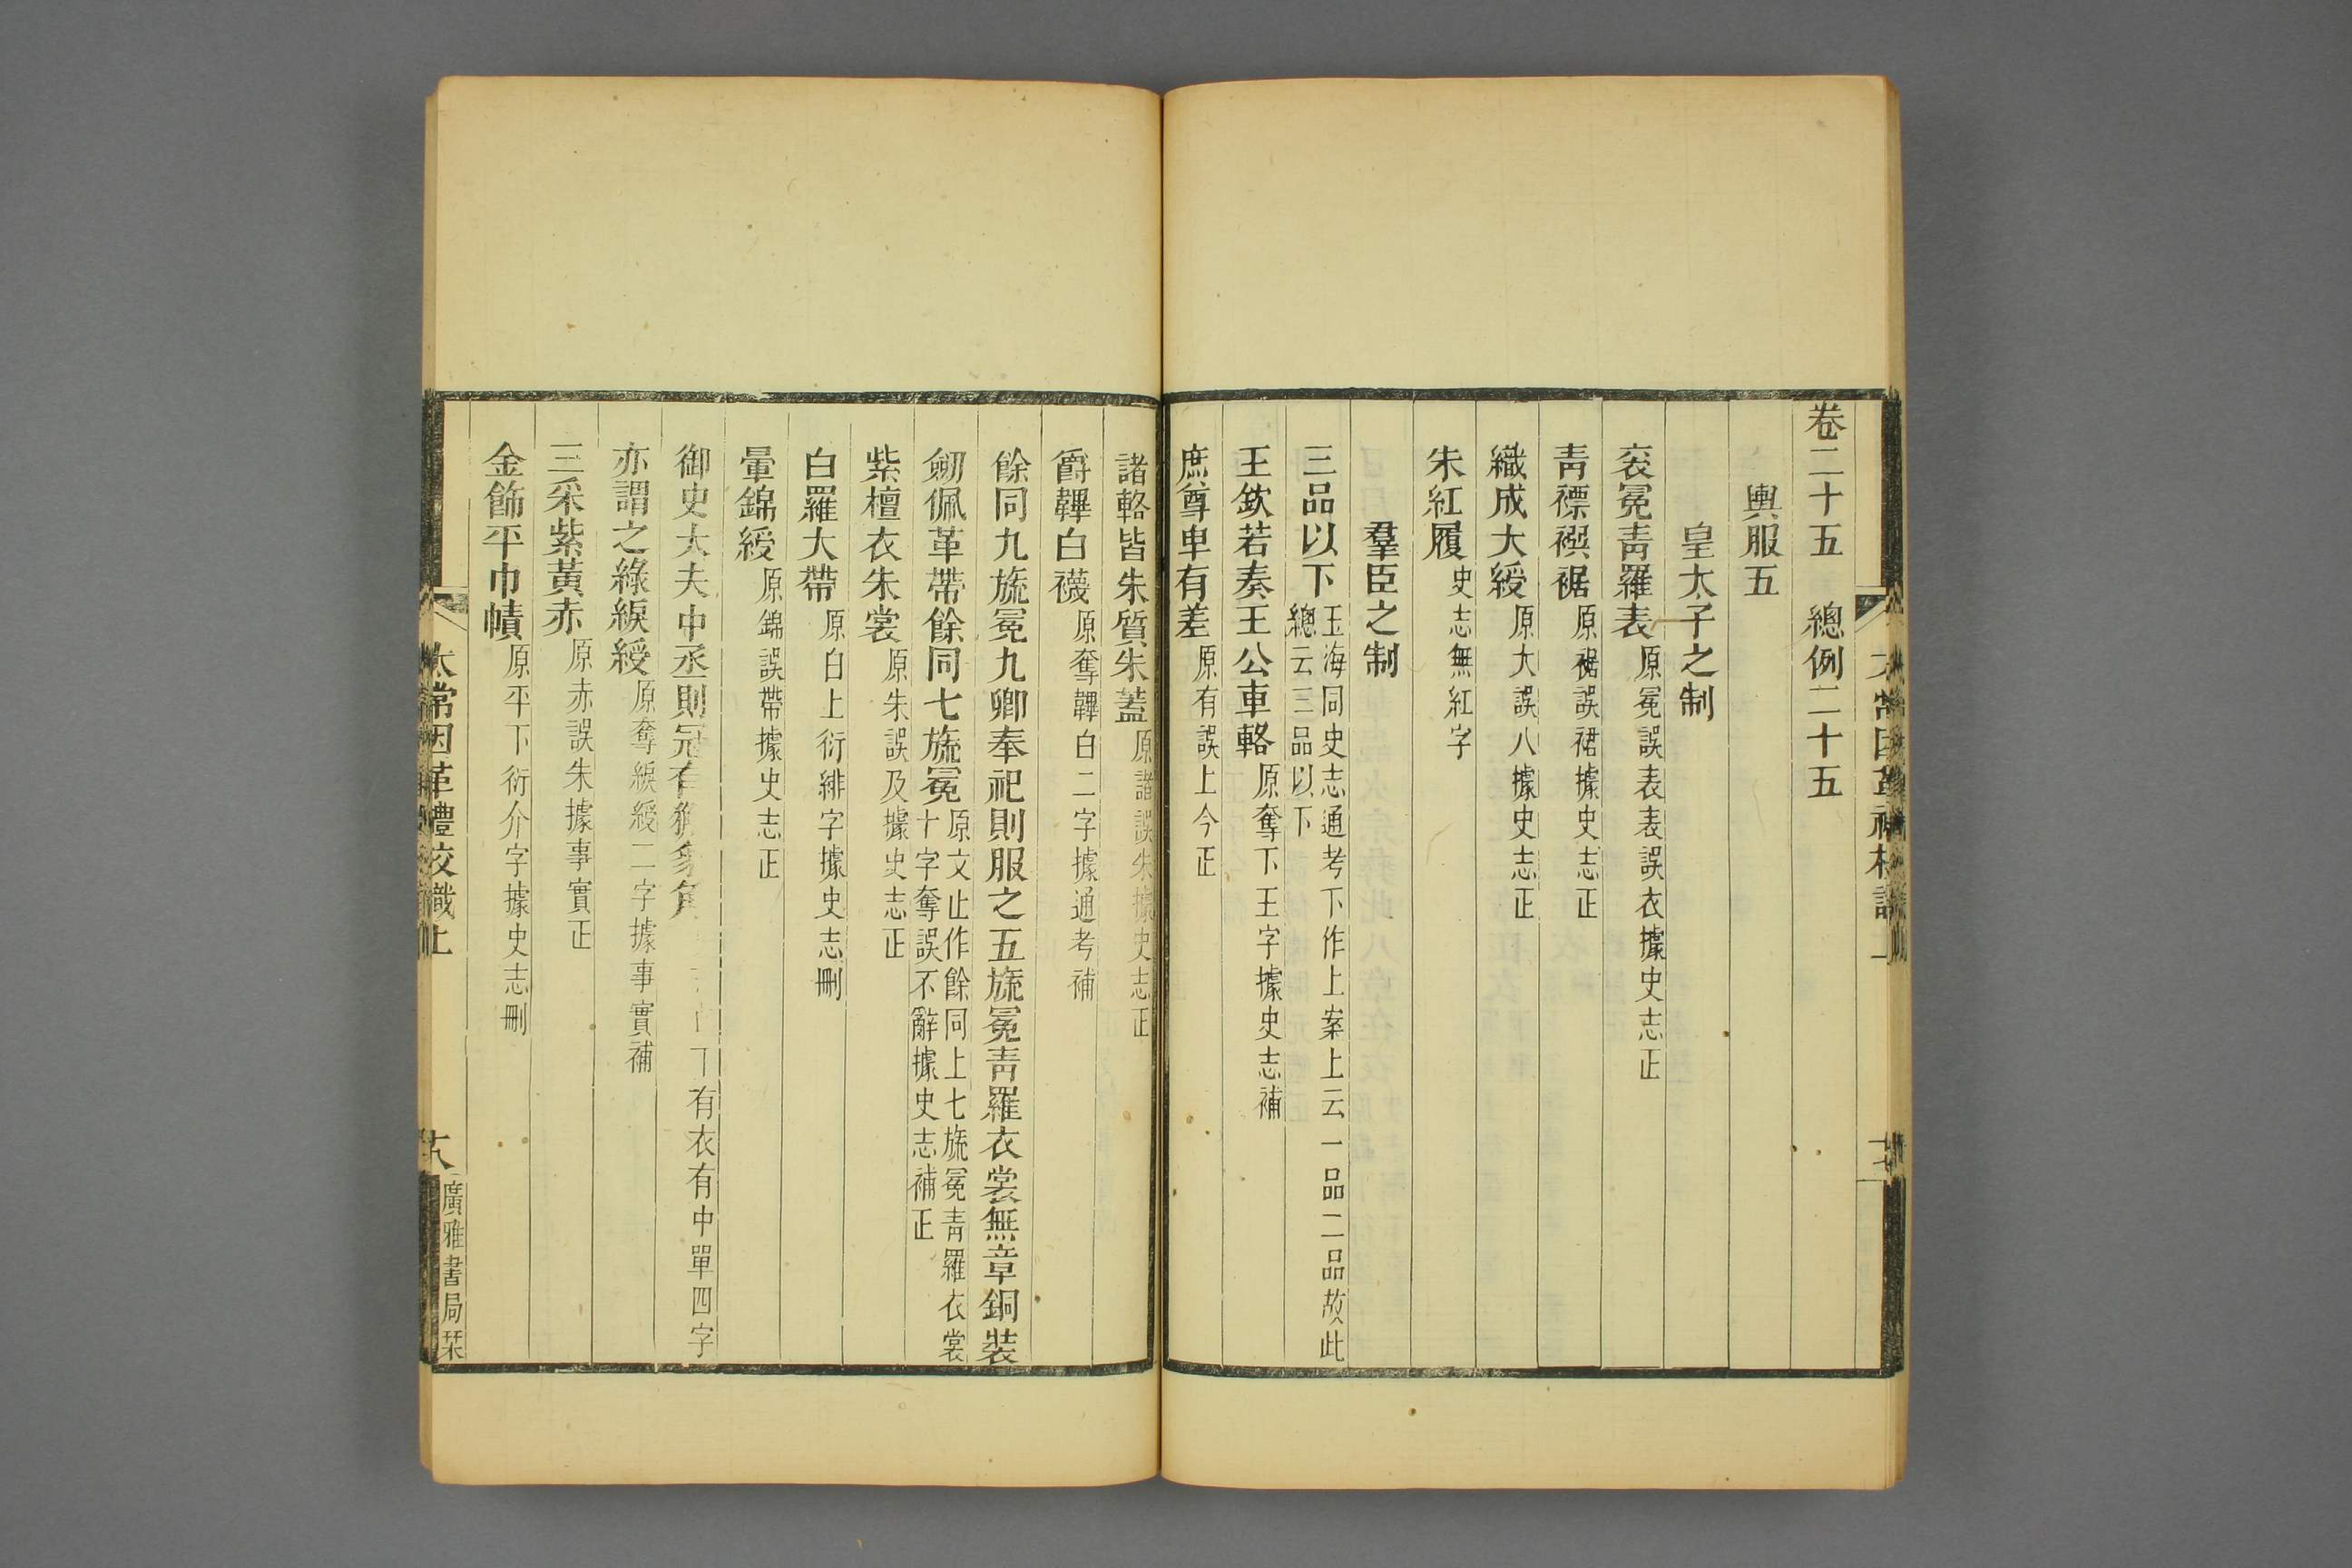 卷二十五　總例二十五
輿服五
皇太子之制
衮冕青羅表原冕誤表表誤衣據史志正
青褾襈裾原裾誤裙據史志正
織成大綬原大誤八據史志正
朱紅履史志無紅字
羣臣之制
三品以下玉海同史志通考下作上案上云一品二品故此總云三品以下
王欽若奏王公車輅原奪下王字據史志補
庶尊卑有差原有誤上今正
諸輅皆朱質朱蓋原諸誤朱據史志正
爵韠白襪原奪韠白二字據通考補
餘同九旒冕九卿奉祀則服之五旒冕青羅衣裳無章銅裝
劒佩革帶餘同七旒冕原文止作餘同上七旒冕青羅衣裳十字奪誤不辭據史志補正
紫檀衣朱裳原朱誤及據史志正
白羅大帶原白上衍緋字據史志刪
暈錦綬原錦誤帶據史志正
御史大夫中丞則冠有獬豸角有衣有中單四字
亦謂之綠綟綬原奪綟綬二字據事實補
三采紫黃赤原赤誤朱據事實正
金飾平巾幘原平下衍介字據史志刪
太常因革禮校識上
十八
廣雅書局栞